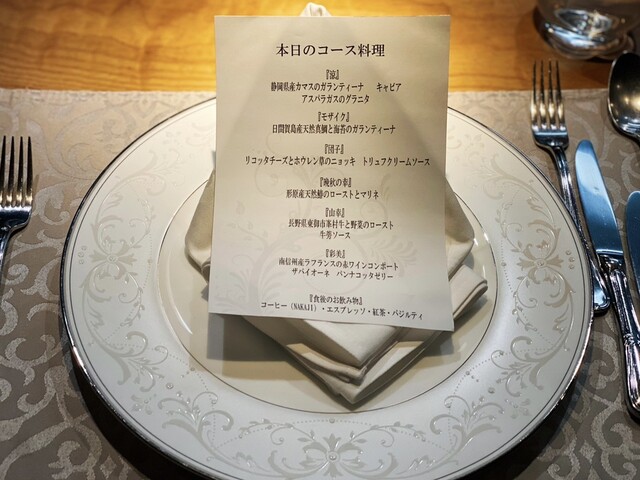 本日のコース料理
『涼』
静岡県産カマスのガランティーナ　キャビア
アスパラガスのグラニタ
『モザイク』
日間賀島産天然真鯛と海苔のガランティーナ
『団子』
リコッタチーズとホウレン草のニョッキ　トリュフクリームソース
『晩秋の幸』
形原産天然鰆のローストとマリネ
『山幸』
長野県東御市峯村牛と野菜のロースト
牛蒡ソース
『彩美』
南信州産ラフランスの赤ワインコンポート
サバイオーネ　パンナコッタゼリー
『食後のお飲み物』
コーヒー（NAKAJI）・エスプレッソ・紅茶・バジルティ